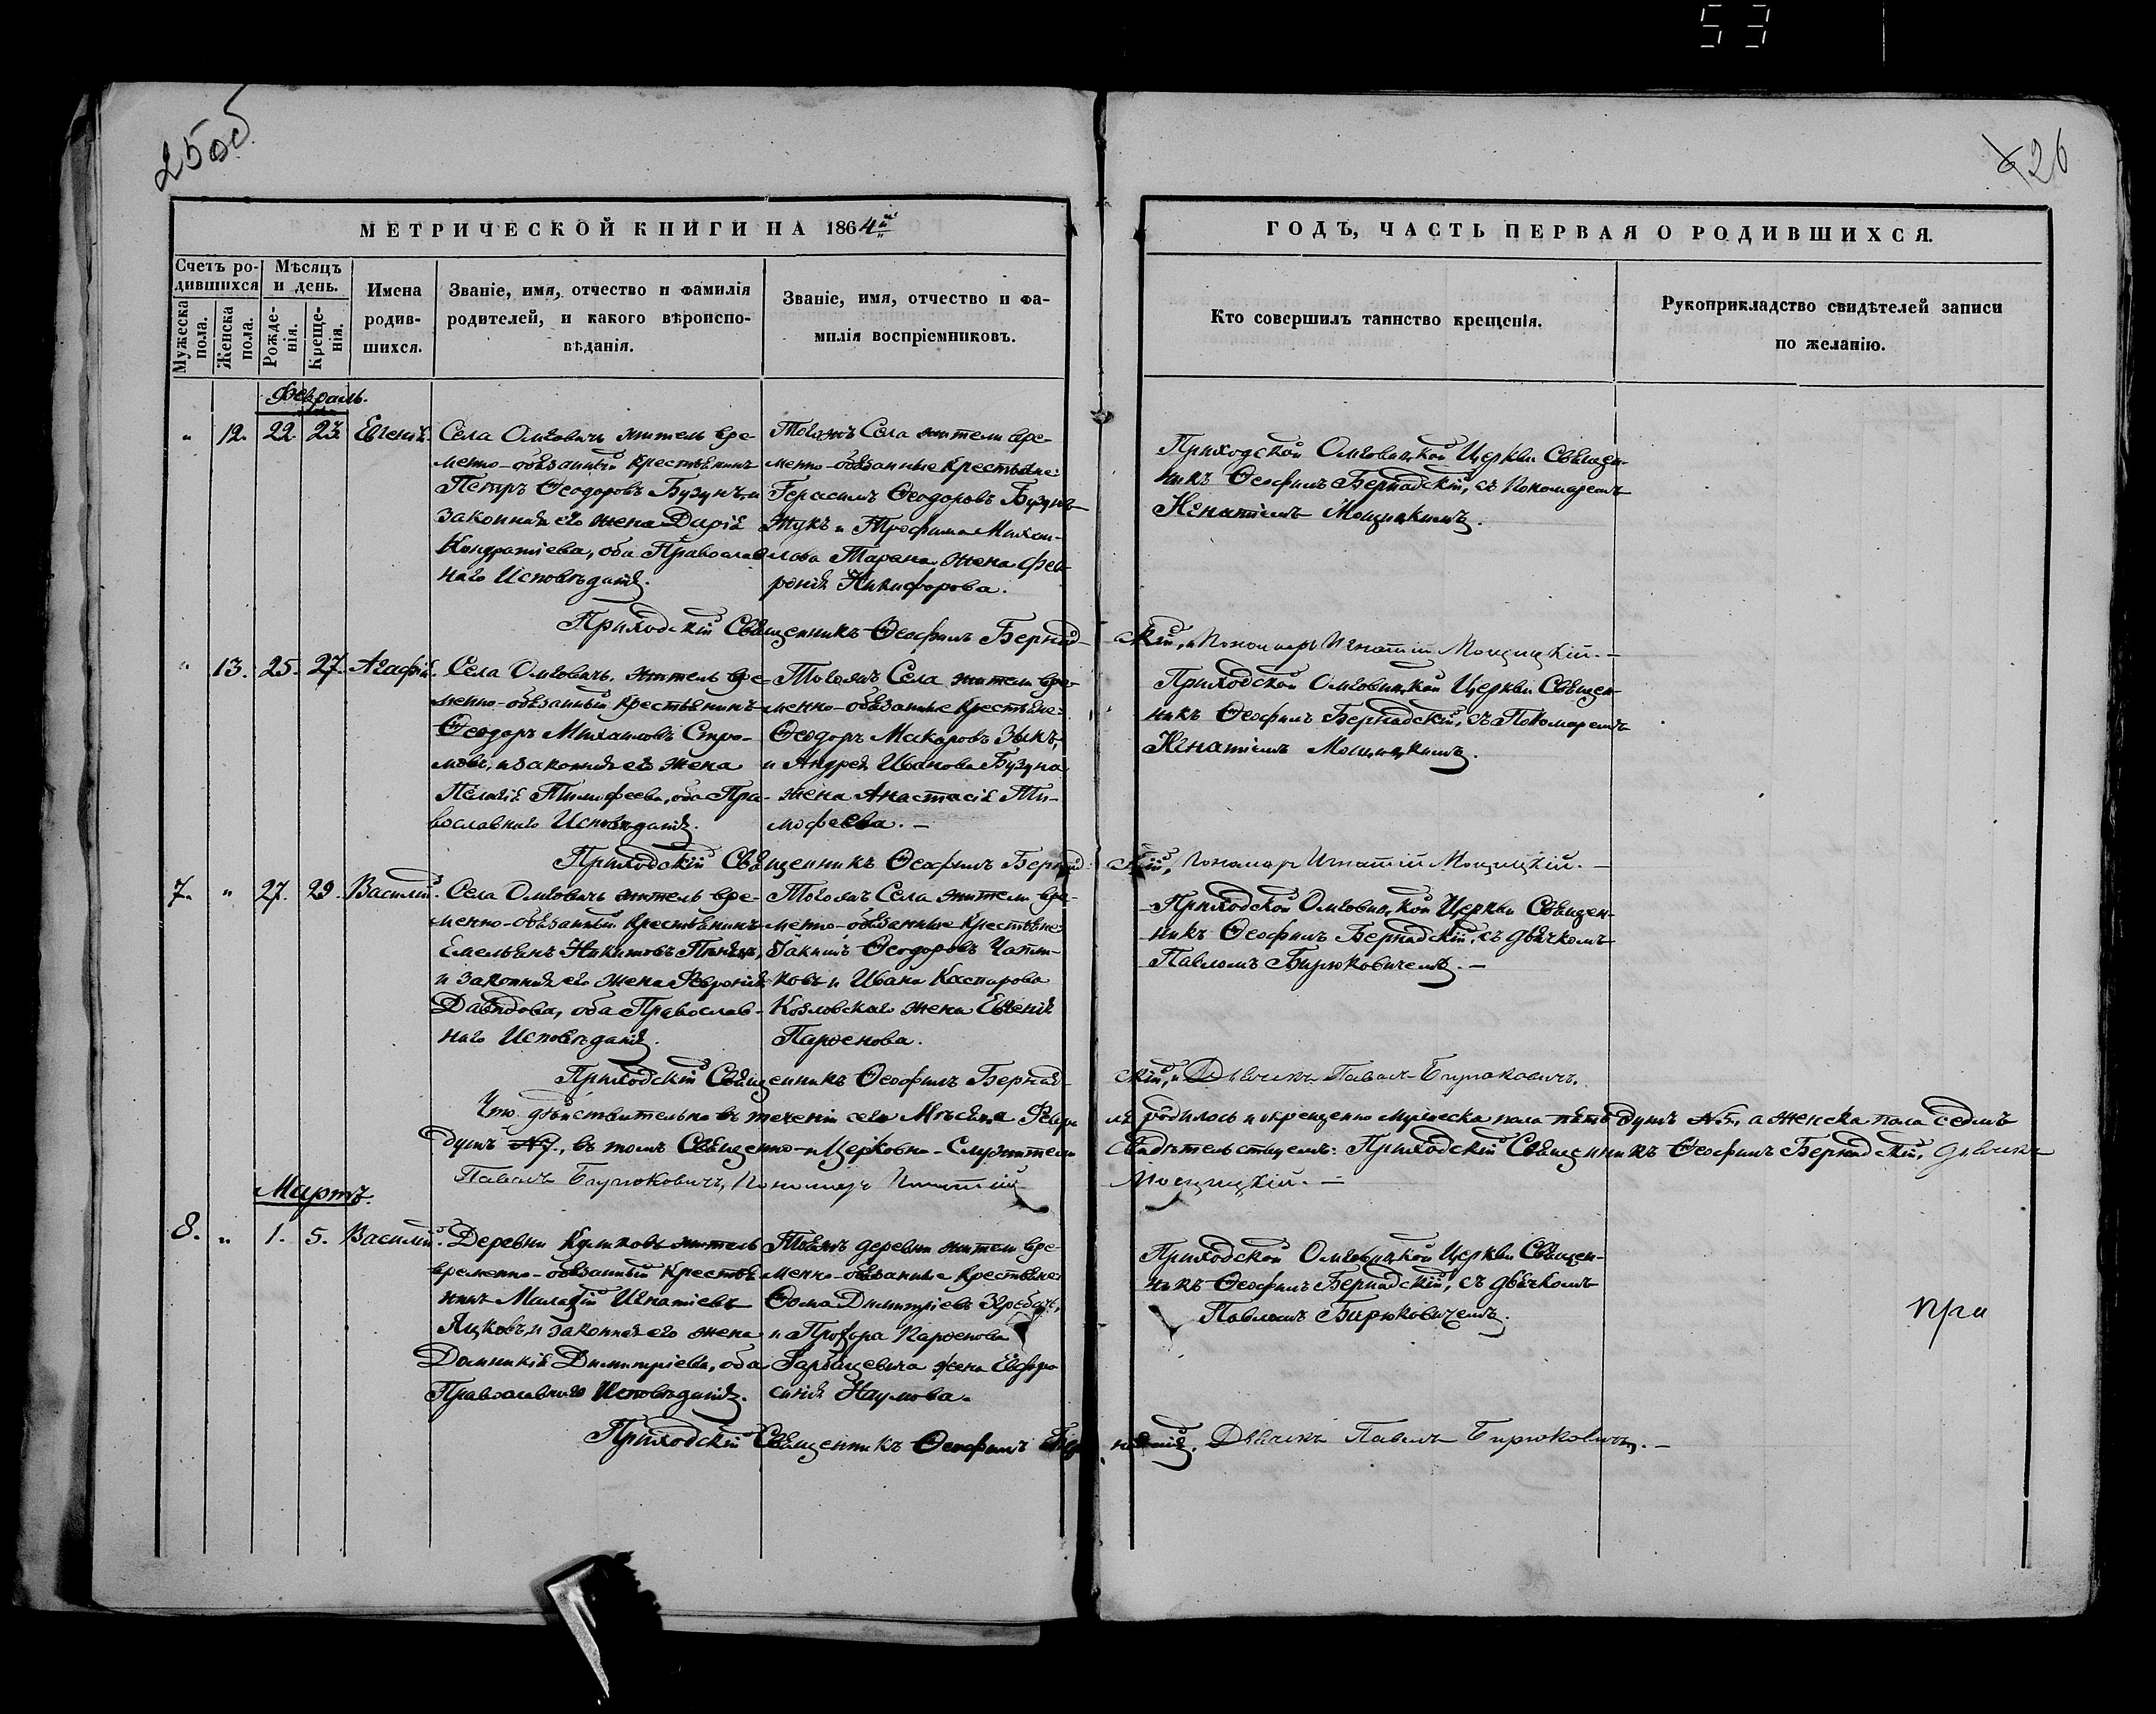 53
25 об
26
МЕТРИЧЕСКОЙ КНИГИ НА 1864й
ГОДЪ, ЧАСТЬ ПЕРВАЯ О РОДИВШИХСЯ.
Счетъ ро-
дившихся
Мужеска
пола.
Женска
пола.
Мѣсяцъ
и день.
Рожде-
нія.
Креще-
нія.
Имена
родив-
шихся.
Званіе, имя, отчество и фамилія
родителей, и какого вѣроиспо-
вѣданія.
Званіе, имя, отчество и фа-
милія воспріемниковъ.
Кто совершилъ таинство крещенія.
Рукоприкладство свидѣтелей записи
по желанію.
Февраль.
" 12. 22. 23. Евгенія.
Села Олговичъ житель вре-
менно-обязанный крестьянинъ
Петръ Ѳеодоровъ Бузунъ, и
законная его жена Дарія
Кондратіева, оба Православ-
наго Исповѣданія.
Тогожъ Села жители вре-
менно-обязанные крестьяне:
Герасимъ Ѳеодоровъ Бузунъ
и Трофима Михай-
лова жена Фев-
ронія Никифорова.
Приходской Олговицкой Церкви Священ-
никъ Ѳеофилъ Бернадскій, съ Пономаремъ
Игнатіемъ Мощицкимъ.
Приходскій Священникъ Ѳеофилъ Бернад-
скій, Пономарь Игнатій Мощицкій.
" 13. 25. 27. Агафія.
Села Олговичъ, житель вре-
менно-обязанный крестьянинъ
Ѳеодоръ Михайловъ
и законная его жена
Пелагія Тимофеева, оба Пра-
вославнаго Исповѣданія.
Тогожъ Села жители вре-
менно-обязанные крестьяне:
Ѳеодоръ Макаровъ Зыкъ,
и Андрея Иванова Бузуна
жена Анастасія Ти-
мофеева.
Приходской Олговицкой Церкви Священ-
никъ Ѳеофилъ Бернадскій, съ Пономаремъ
Игнатіемъ Мощицкимъ.
Приходскій Священникъ Ѳеофилъ Бернад-
скій, Пономарь Игнатій Мощицкій.
7. " 27. 29. Василій.
Села Олговичъ житель вре-
менно-обязанный крестьянинъ
Емельянъ Никитовъ
и законная его жена Февронія
Давидова, оба Православ-
наго Исповѣданія.
Тогожъ Села жители вре-
менно-обязанные крестьяне:
Іакимъ Ѳеодоровъ
и Ивана Каспарова
Козловскаго жена Евгенія
Парѳенова.
Приходской Олговицкой Церкви Священ-
никъ Ѳеофилъ Бернадскій, съ дьячкомъ
Павломъ Бирюковичемъ.
Приходскій Священникъ Ѳеофилъ Бернад-
скій, Дьячекъ Павелъ Бирюковичъ.
Что дѣйствительно въ теченіи сего Мѣсяца Февра-
ля родилось и крещенно мужеска пола пять душъ №5, а женска пола седмъ
душъ №7., въ томъ Священно-и Церковно-Служители
свидѣтельствуемъ: Приходскій Священникъ Ѳеофилъ Бернадскій, дьячекъ
Павелъ Бирюковичъ, Пономарь Игнатій
Мощицкій.
Мартъ.
8. " 1. 5. Василій.
Деревни Куликовъ житель
временно-обязанный крестья-
нинъ Игнатіевъ
Яцковъ, и законная его жена
Домникія Димитріева, оба
Православнаго Исповѣданія.
Тоежъ деревни жители вре-
менно-обязанные крестьяне:
Ѳома Димитріевъ
и Прохора Парѳенова
Гарбацевича жена Евфро-
синія Наумова.
Приходской Олговицкой Церкви Священ-
никъ Ѳеофилъ Бернадскій, съ дьячкомъ
Павломъ Бирюковичемъ.
при
Приходскій Священникъ Ѳеофилъ Бер-
надскій, Дьячекъ Павелъ Бирюковичъ.